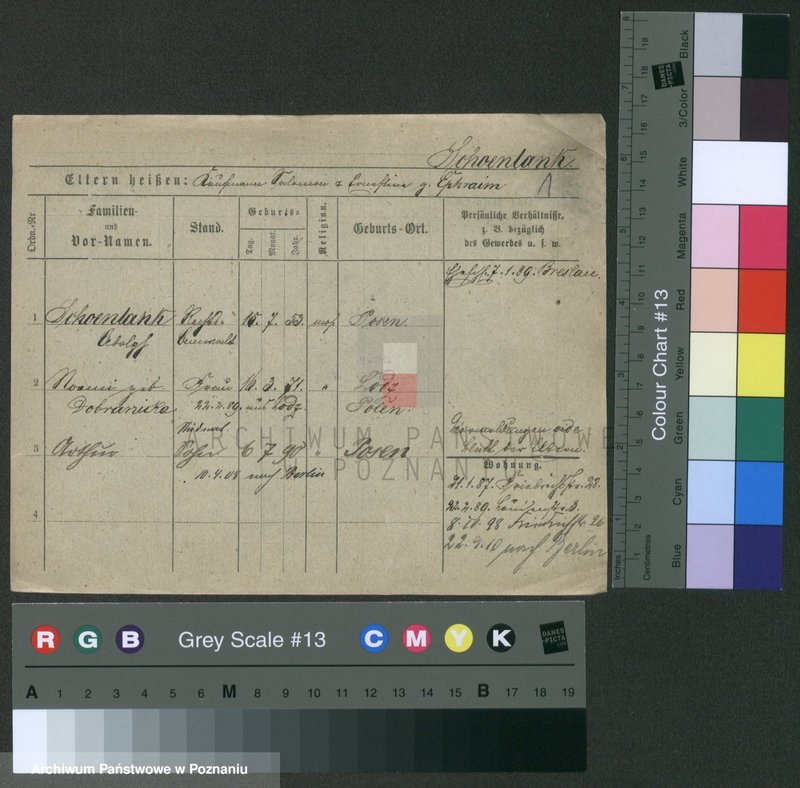 Schoenlank.
Eltern heißen: Kaufmann Salomon & Ernestine g. Ephraim
1
Ordn.-Nr
Familien-
und
Vor-Namen.
Stand.
Geburts-
Tag.
Monat.
Jahr.
Religion.
Geburts-Ort.
Persönliche Verhältnisse,
z. B. bezüglich
des Gewerbes u. s. w.
7.1.89. Breslau.
1 Schoenlank Rechts- 15. 7. 53. mos. Posen.
Adolf anwalt
2 Noemi geb. Frau 16. 3. 71. " Lodz
Dobranicka 22.4.89. aus Lodz Polen.
3 Arthur Sohn 6 7 90 " Posen
10.4.08 nach Berlin
4
blatt der Eltern.
Wohnung.
21.1.87. Friedrichstr. 28.
22.2.89. Louisenstr. 3.
8.10.98 Friedrichstr. 26
22.9.10 nach Berlin
ARCHIWUM PAŃSTWOWE
POZNAŃ
R G B Grey Scale #13 C M Y K
DANES
PICTA
.COM
A 1 2 3 4 5 6 M 8 9 10 11 12 13 14 15 B 17 18 19
Archiwum Państwowe w Poznaniu
Colour Chart #13
Blue
Cyan
Green
Yellow
Red
Magenta
White
3/Color
Black
Inches
1 2 3 4 5 6 7 8
Centimetres
1 2 3 4 5 6 7 8 9 10 11 12 13 14 15 16 17 18 19
DANES
PICTA
.COM